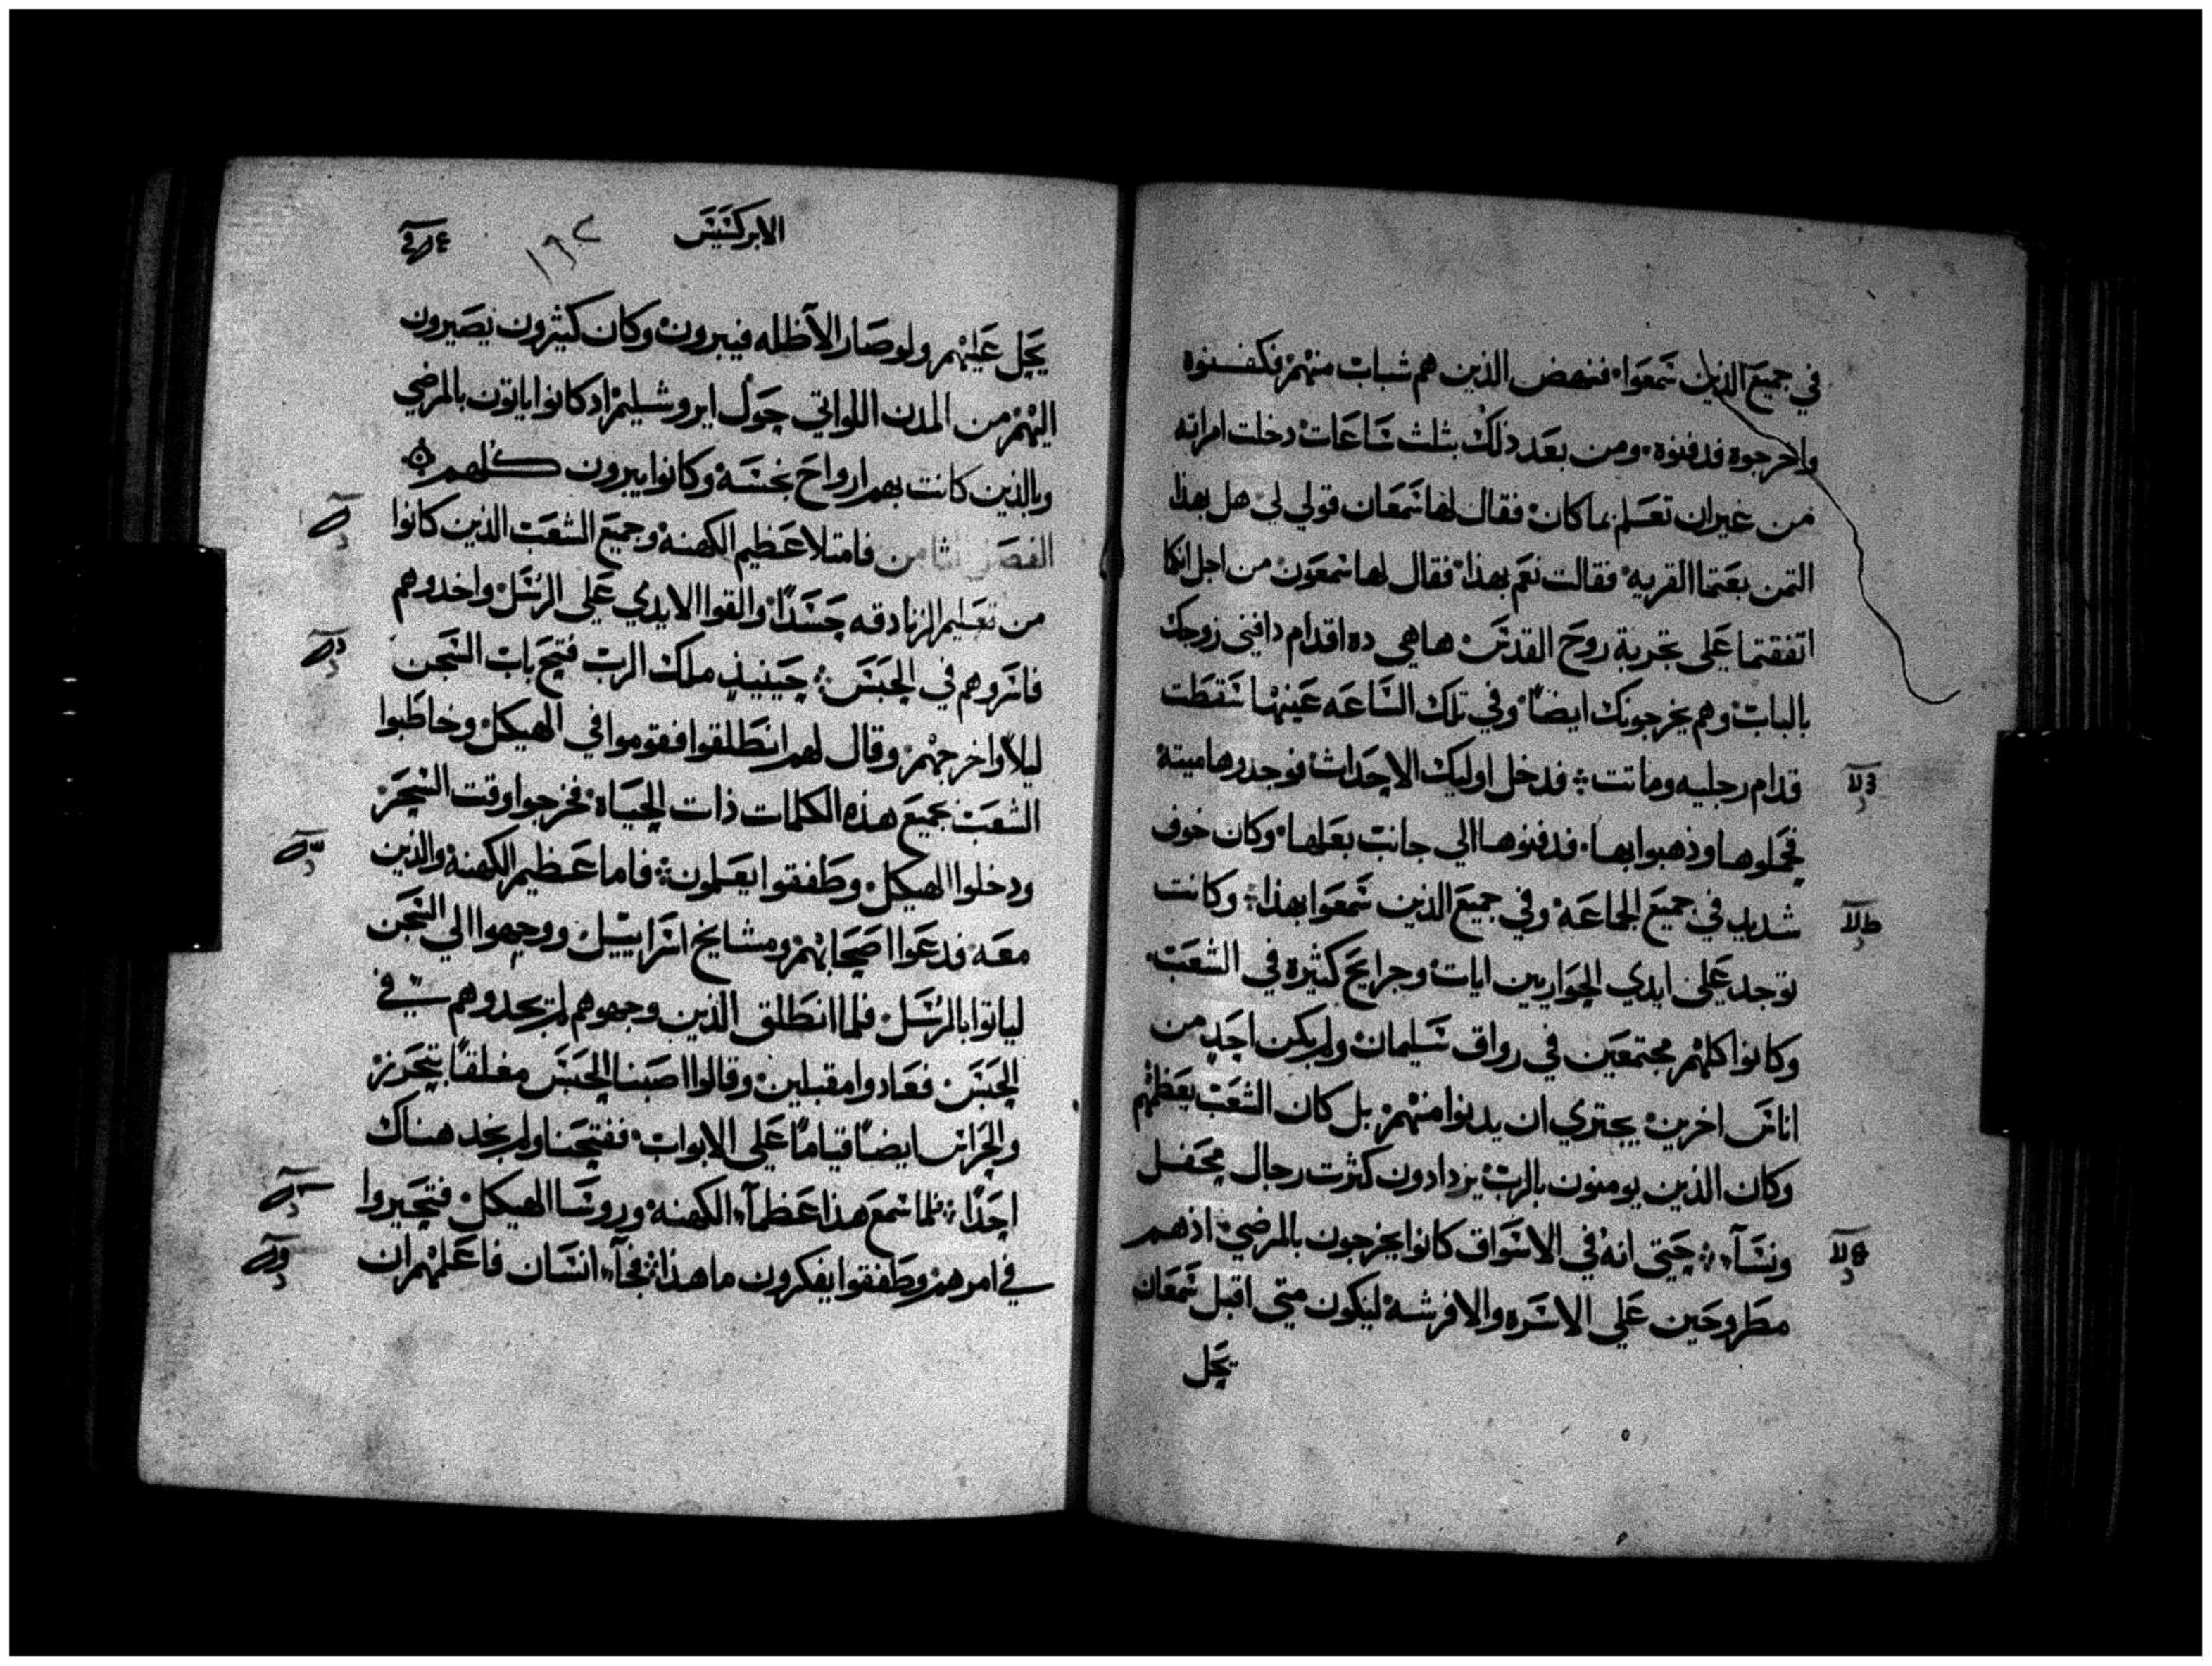 في جميع الذين سمعوا، فنهض الذين هم شباب منهم فكفنوه
واخرجوه فدفنوه، ومن بعد ذلك بثلث ساعات دخلت امراته
من غير ان تعلم بما كان، فقال لها شمعان قولي لي هل بهذا
الثمن بعتما القريه، فقالت نعم بهذا، فقال لها شمعون من اجل انكما
اتفقتما علي تجربة روح القدس، هاهي ده اقدام دافني زوجك
بالباب، وهم يخرجونك ايضاً، وفي تلك الساعه عينها سقطت
قدام رجليه وماتت ⁘ فدخل اوليك الاحداث فوجدوها ميته
فحملوها وذهبوا بها، فدفنوها الي جانب بعلها، وكان خوف
شديد في جميع الجماعه، وفي جميع الذين سمعوا بهذا ⁘ وكانت
توجد علي ايدي الحواريين ايات وجرايح كثيره في الشعب،
وكانوا كلهم مجتمعين في رواق سليمان، ولم يكن احد من
اناس اخرين يجتري ان يدنوا منهم، بل كان الشعب يعظمهم
وكان الذين يومنون بالرب يزدادون كثرت رجال محفل
ونسآء ⁘ حتي انه في الاسواق كانوا يخرجون بالمرضي، اذهم
مطروحين علي الاسره والافرشه، ليكون متي اقبل شمعان
تحل
الابركسيس
١٦٢
يحل عليهم ولو صار الآ ظله فيبرون، وكان كثيرون يصيرون
اليهم من المدن اللواتي حول ايروشليم، اد كانوا ياتون بالمرضي
وبالذين كانت بهم ارواح نجسه وكانوا يبرون كلهم
الفصل الثامن فامتلا عظيم الكهنه وجميع الشعب الذين كانوا
من تعليم الزنادقه حسداً، والقوا الايدي علي الرسل، واخدوهم
فاسروهم في الحبس ⁘ حينيذ ملك الرب فتح باب السجن
ليلاً واخرجهم، وقال لهم انطلقوا فقوموا في الهيكل، وخاطبوا
الشعب بجميع هذه الكلمات ذات الحياه، فخرجوا وقت السحر
ودخلوا الهيكل، وطفقوا يعلمون ⁘ فاما عظيم الكهنه والذين
معه، فدعوا اصحابهم ومشايخ اسراييل، ووجهوا الي السجن
لياتوا بالرسل، فلما انطلق الذين وجهوهم لم يجدوهم في
الحبس، فعادوا مقبلين، وقالوا اصبنا الحبس مغلقاً بتحرز
والحراس ايضاً قياماً علي الابواب، ففتحنا ولم نجد هناك
احداً ⁘ فلما سمع هذا عظمآء الكهنه وروسا الهيكل، فتحيروا
في امرهم، وطفقوا يفكرون ما هذا ⁘ فجآء انسان فاعلمهم ان